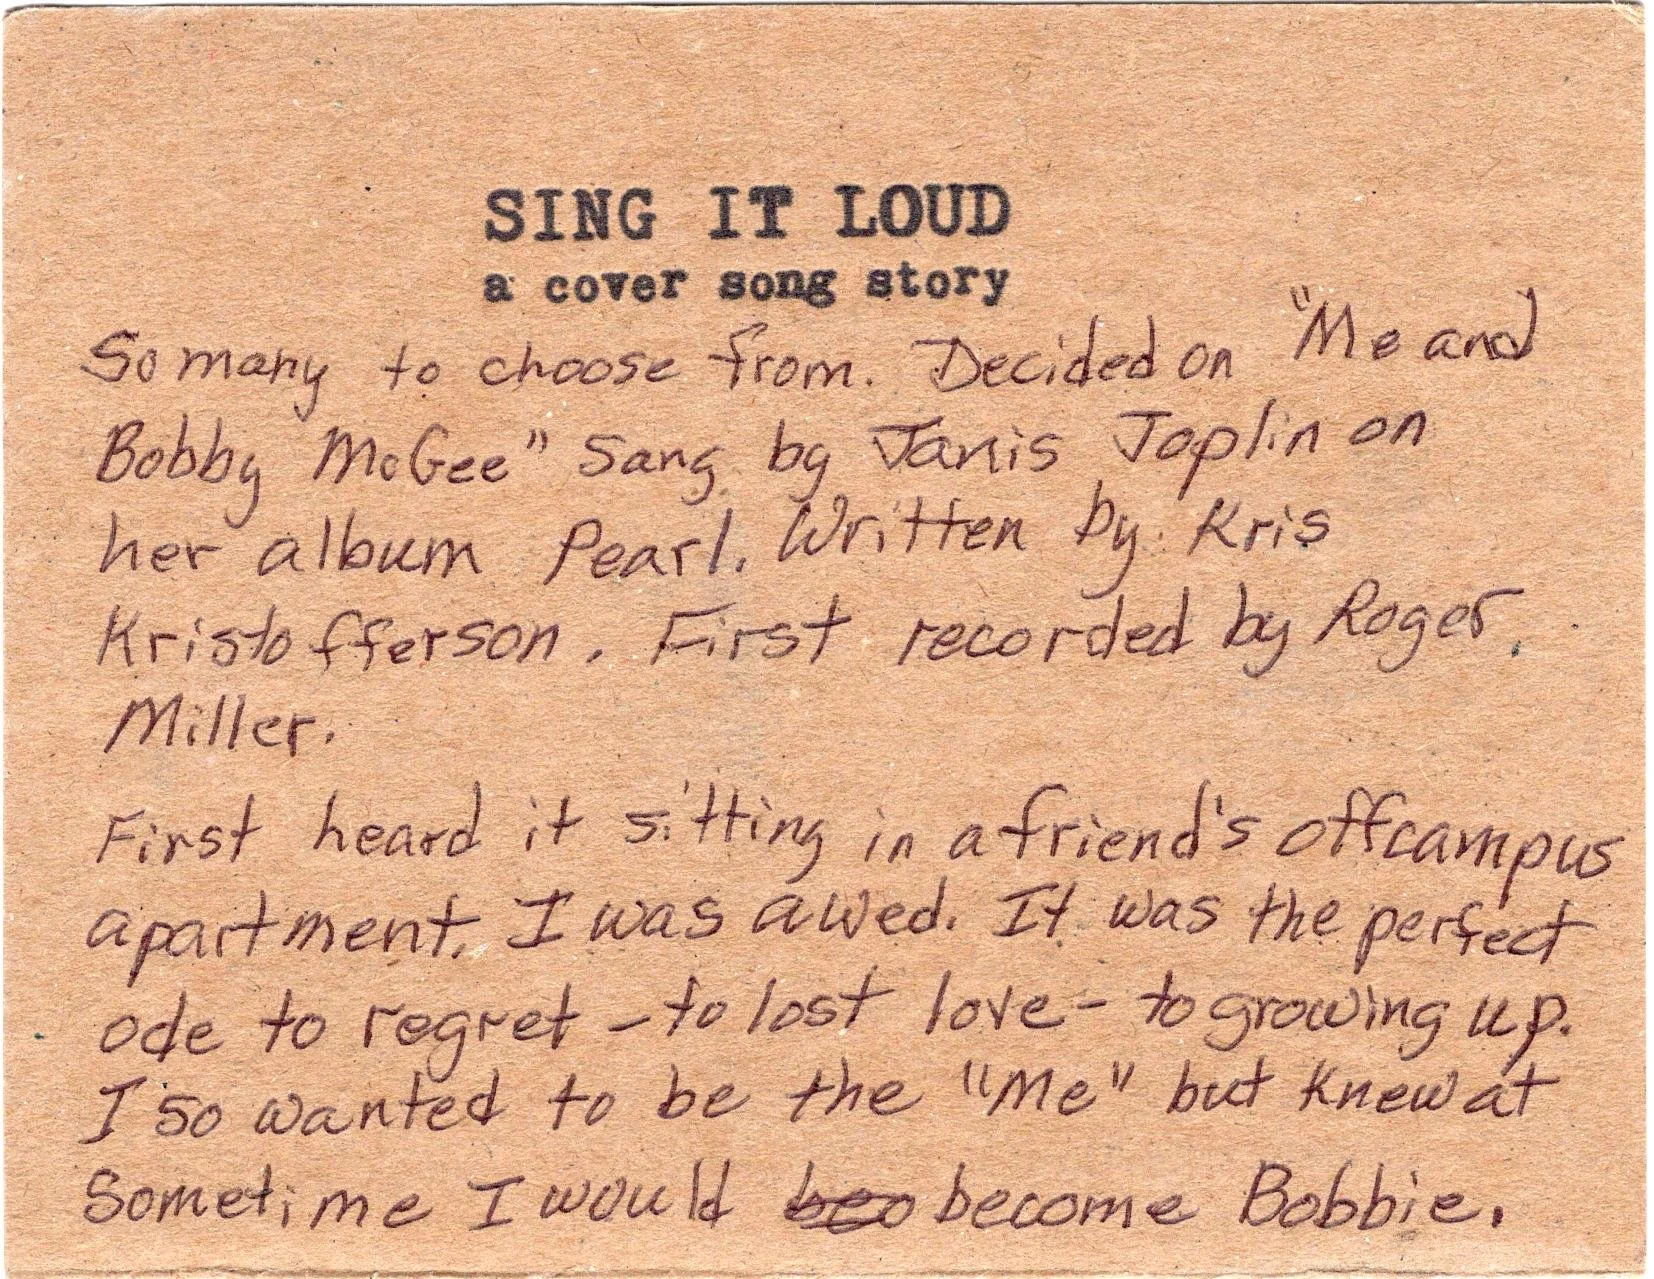 SING IT LOUD
a cover song story
So many to choose from. Decided on "Me and
Bobby McGee" Sang by Janis Joplin on
her album Pearl. Written by Kris
Kristofferson. First recorded by Roger
Miller.
First heard it sitting in a friend's offcampus
apartment. I was awed. It was the perfect
ode to regret - to lost love - to growing up.
I so wanted to be the "Me" but knew at
Sometime I would beo become Bobbie.